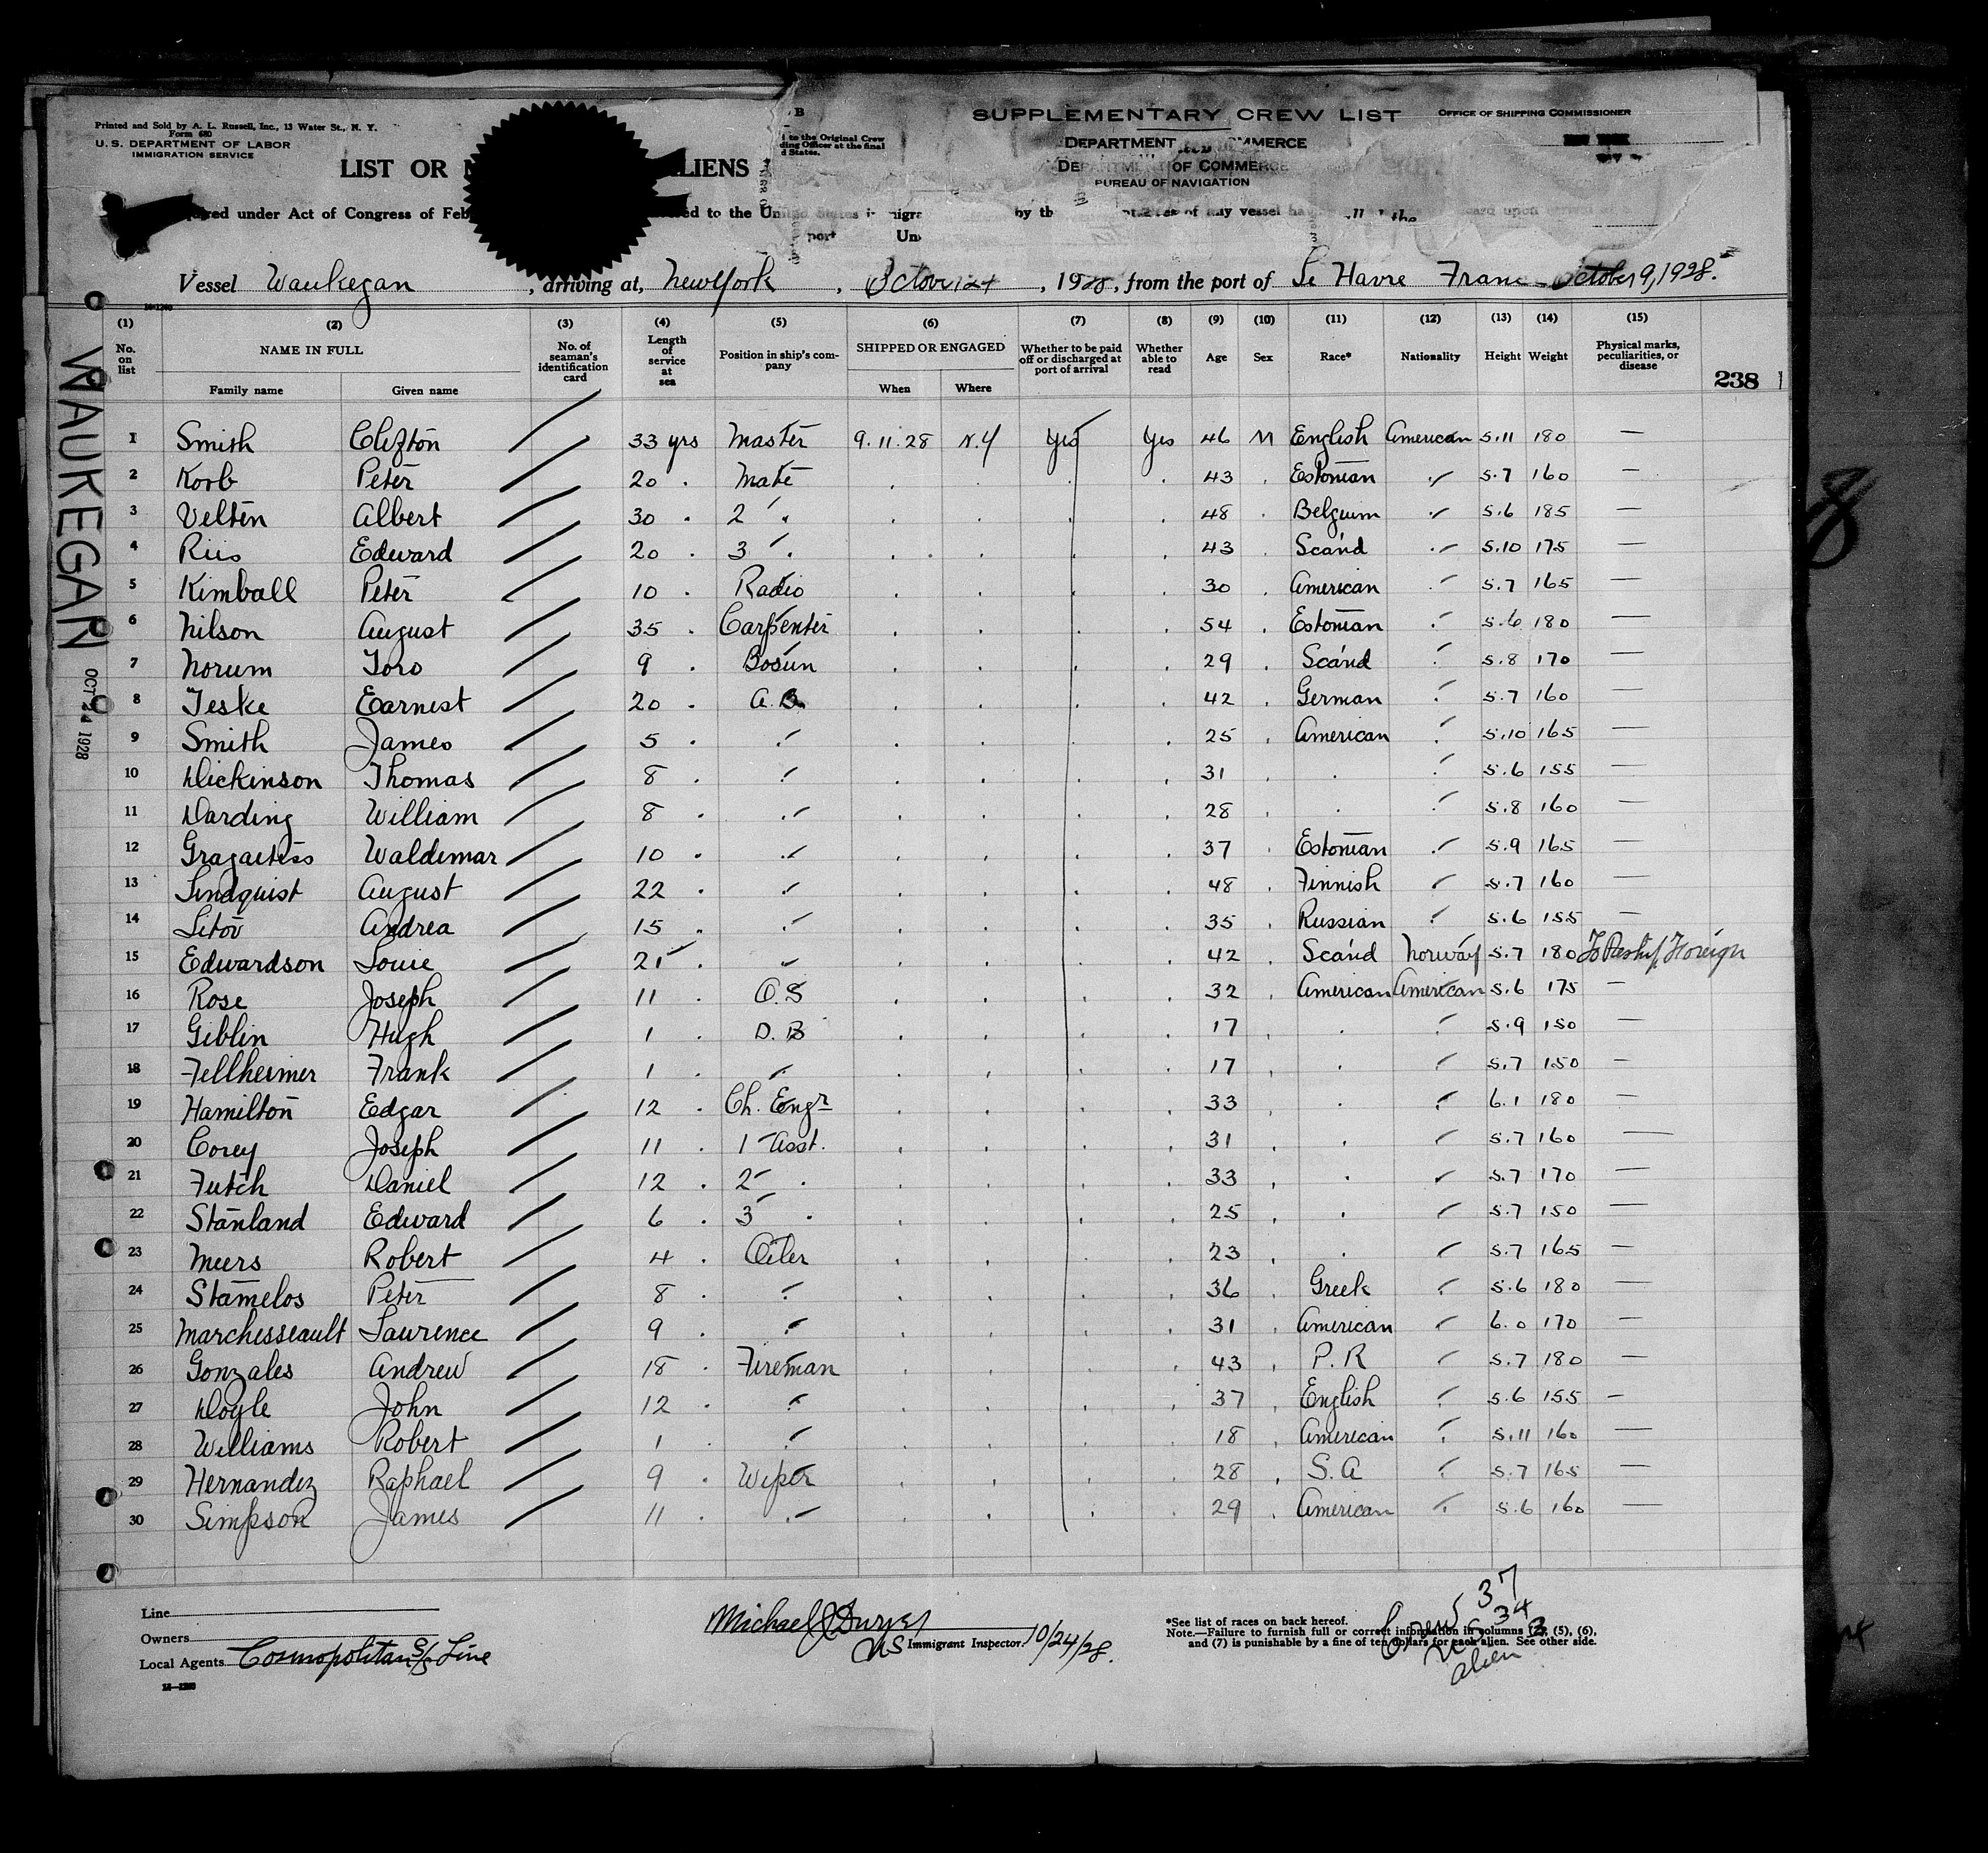 Printed and Sold by A. L. Russell, Inc., 13 Water St., N. Y.
Form 680
U. S. DEPARTMENT OF LABOR
IMMIGRATION SERVICE
B
to the Original Crew
ding Officer at the final
d States.
SUPPLEMENTARY CREW LIST
OFFICE OF SHIPPING COMMISSIONER
DEPARTMENT MMERCE
DEPARTMENT OF COMMERCE
BUREAU OF NAVIGATION
LIST OR LIENS
uired under Act of Congress of Feb ed to the United States immigra by th of any vessel ha the ard upon
port Un
Vessel Waukegan, arriving at, New York, 1928, from the port of Le Havre Franc October 9, 1928.
(1) (2) (3) (4) (5) (6) (7) (8) (9) (10) (11) (12) (13) (14) (15)
No. on list NAME IN FULL No. of seaman's identification card Length of service at sea Position in ship's company SHIPPED OR ENGAGED Whether to be paid off or discharged at port of arrival Whether able to read Age Sex Race* Nationality Height Weight Physical marks, peculiarities, or disease 238
Family name Given name When Where
1 Smith Clifton 33 yrs Master 9.11.28 N.Y Yes Yes 46 M English American 5.11 180 —
2 Koob Peter 20 . Mate . . . . 43 . Estonian " 5.7 160 —
3 Velten Albert 30 . 2 " . . . . 48 . Belgium " 5.6 185 —
4 Riis Edward 20 . 3 " . . . . 43 . Scand " 5.10 175 —
5 Kimball Peter 10 . Radio . . . . 30 . American " 5.7 165 —
6 Nilson August 35 . Carpenter . . . . 54 . Estonian " 5.6 180 —
7 Norum Toro 9 . Bosun . . . . 29 . Scand " 5.8 170 —
8 Teske Earnest 20 . A.B. . . . . 42 . German " 5.7 160 —
9 Smith James 5 . " . . . . 25 . American " 5.10 165 —
10 Dickinson Thomas 8 . " . . . . 31 . . " 5.6 155 —
11 Darding William 8 . " . . . . 28 . . " 5.8 160 —
12 Waldemar 10 . " . . . . 37 . Estonian " 5.9 165 —
13 Lindquist August 22 . " . . . . 48 . Finnish " 5.7 160 —
14 Litov Andrea 15 . " . . . . 35 . Russian " 5.6 155 —
15 Edwardson Louie 21 . " . . . . 42 . Scand Norway 5.7 180 To Reship Foreign
16 Rose Joseph 11 . O.S . . . . 32 . American American 5.6 175 —
17 Giblin Hugh 1 . D.B . . . . 17 . . " 5.9 150 —
18 Fellheimer Frank 1 . " . . . . 17 . . " 5.7 150 —
19 Hamilton Edgar 12 . Ch. Engr . . . . 33 . . " 6.1 180 —
20 Corey Joseph 11 . 1 Asst. . . . . 31 . . " 5.7 160 —
21 Futch Daniel 12 . 2 . . . . . 33 . . " 5.7 170 —
22 Stanland Edward 6 . 3 . . . . . 25 . . " 5.7 150 —
23 Meers Robert 4 . Oiler . . . . 23 . . " 5.7 165 —
24 Stamelos Peter 8 . " . . . . 36 . Greek " 5.6 180 —
25 Marchesseault Lawrence 9 . " . . . . 31 . American " 6.0 170 —
26 Gonzales Andrew 18 . Fireman . . . . 43 . P.R " 5.7 180 —
27 Doyle John 12 . " . . . . 37 . English " 5.6 155 —
28 Williams Robert 1 . " . . . . 18 . American " 5.11 160 —
29 Hernandez Raphael 9 . Wiper . . . . 28 . S.A " 5.7 165 —
30 Simpson James 11 . " . . . . 29 . American " 5.6 160 —
WAUKEGAN
OCT 24 1928
Line
Owners
Local Agents Cosmopolitan S/S Line
Michael J Dwyer
US Immigrant Inspector. 10/24/28.
*See list of races on back hereof.
Note.—Failure to furnish full or correct information in columns (2), (5), (6),
and (7) is punishable by a fine of ten dollars for each alien. See other side.
Crew 37
US 34
alien 3